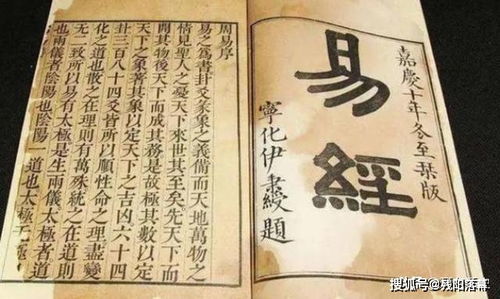 嘉慶十年冬至栞版
易經
寧化伊秉綬題
周易序
易之爲書卦爻彖象之義備而天地萬物之
情見聖人之憂天下來世其至矣先天下而
開其物後天下而成其務是故極其數以定
天下之象著其象以定天下之吉凶六十四
卦三百八十四爻皆所以順性命之理盡變
化之道也散之在理則有萬殊統之在道則
無二致所以易有太極是生兩儀太極者道
也兩儀者陰陽也陰陽一道也太極无極
搜狐号@残阳落客